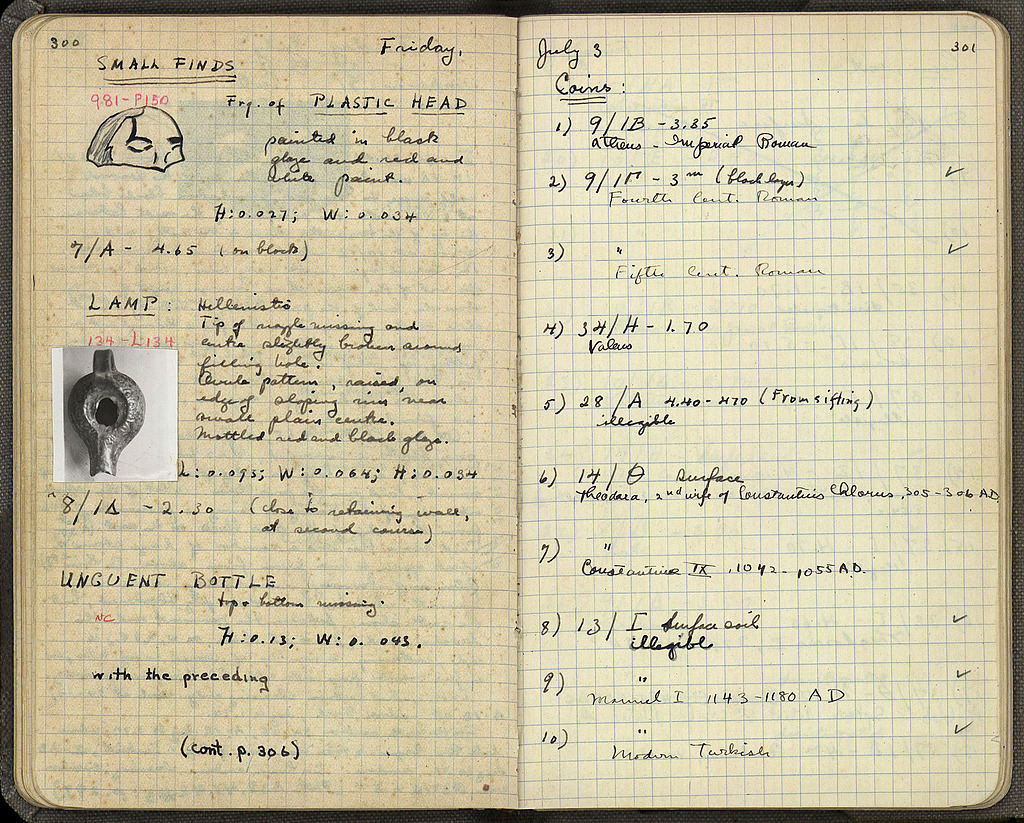 300
Friday,
SMALL FINDS
981-P150
Frg. of PLASTIC HEAD
painted in black
glaze and red and
white paint.
H:0.027; W:0.034
7/A - 4.65 (on block)
LAMP: Hellenistic
Tip of nozzle missing and
134-L134
centre slightly broken around
filling hole.
Ovule pattern, raised, on
edge of sloping rim near
small plain centre.
Mottled red and black glaze.
L:0.093; W:0.068; H:0.034
8/1Δ - 2.30 (close to retaining wall,
at second course)
UNGUENT BOTTLE
top & bottom missing.
NC
H:0.13; W:0.043.
with the preceding
(cont. p. 306)
July 3
301
Coins:
1) 9/1B - 3.35
Athens - Imperial Roman
2) 9/1Γ - 3m (black layer) ✓
Fourth Cent. Roman
3) " ✓
Fifth Cent. Roman
4) 34/H - 1.70
Valens
5) 28/A 4.40-470 (From sifting)
illegible
6) 14/Θ Surface
Theodora, 2nd wife of Constantius Chlorus, 305-306 AD
7) "
Constantine IX, 1042-1055 A.D.
8) 13/I Surface soil ✓
illegible
9) " ✓
Manuel I 1143-1180 AD
10) " ✓
Modern Turkish